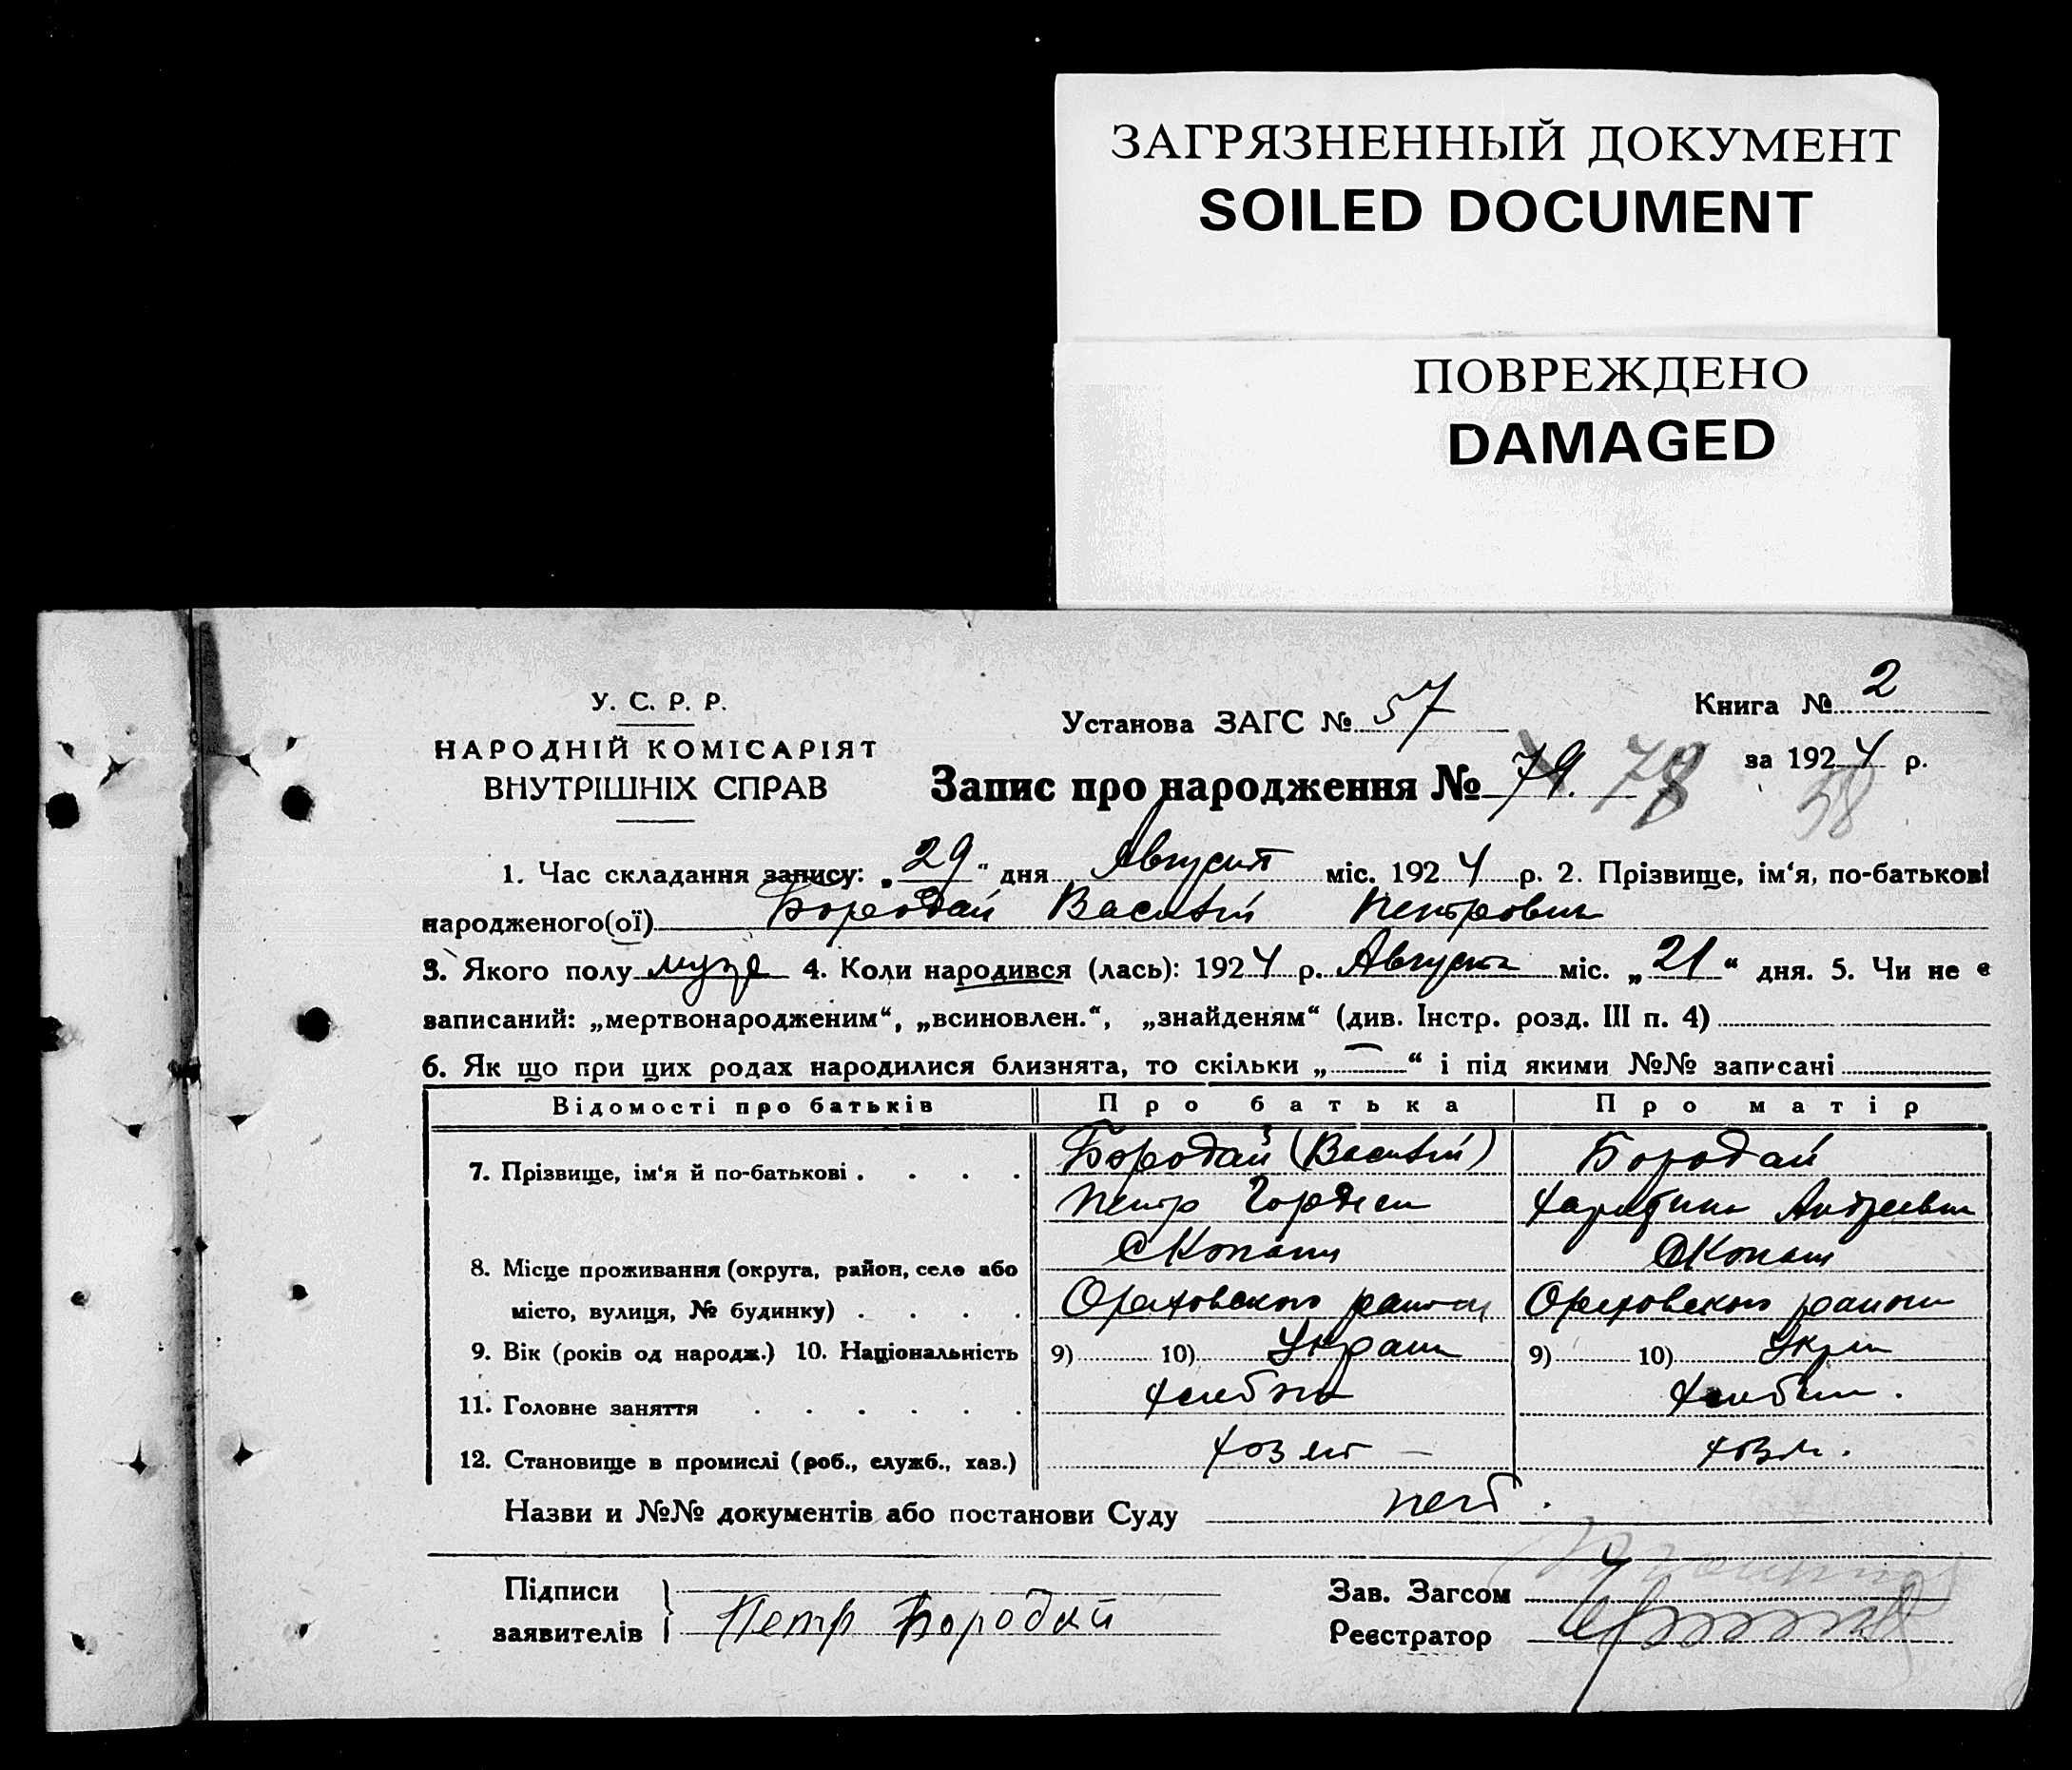 ЗАГРЯЗНЕННЫЙ ДОКУМЕНТ
SOILED DOCUMENT
ПОВРЕЖДЕНО
DAMAGED
У. С. Р. Р.
НАРОДНІЙ КОМІСАРІЯТ
ВНУТРІШНІХ СПРАВ
Установа ЗАГС № 57
Книга № 2
за 1924 р.
Запис про народження № 79. 78 58
1. Час складання запису: „29" дня Август міс. 1924 р. 2. Прізвище, ім‘я, по-батькові
народженого(ої) Бородай Василий Петрович
3. Якого полу муже 4. Коли народився (лась): 1924 р. Августа міс. „21“ дня. 5. Чи не є
записаний: „мертвонародженим“, „всиновлен.“, „знайденям“ (див. Інстр. розд. III п. 4)
6. Як що при цих родах народилися близнята, то скільки „—“ і під якими №№ записані
Відомості про батьків Про батька Про матір
7. Прізвище, ім‘я й по-батькові . . . . Бородай (Василий) Бородай
Петр Гордеев Андреевна
8. Місце проживання (округа, район, село або С Копани С Копани
місто, вулиця, № будинку) . . . . Ореховского района Ореховского района
9. Вік (років од народж.) 10. Національність 9) 10) Украин 9) 10) Укра
11. Головне заняття . . . . . . хлебоп хлебоп.
12. Становище в промислі (роб., служб., хаз.) хозяин — хозя.
Назви и №№ документів або постанови Суду нет.
Підписи
заявителів Петр Бородай
Зав. Загсом
Реєстратор